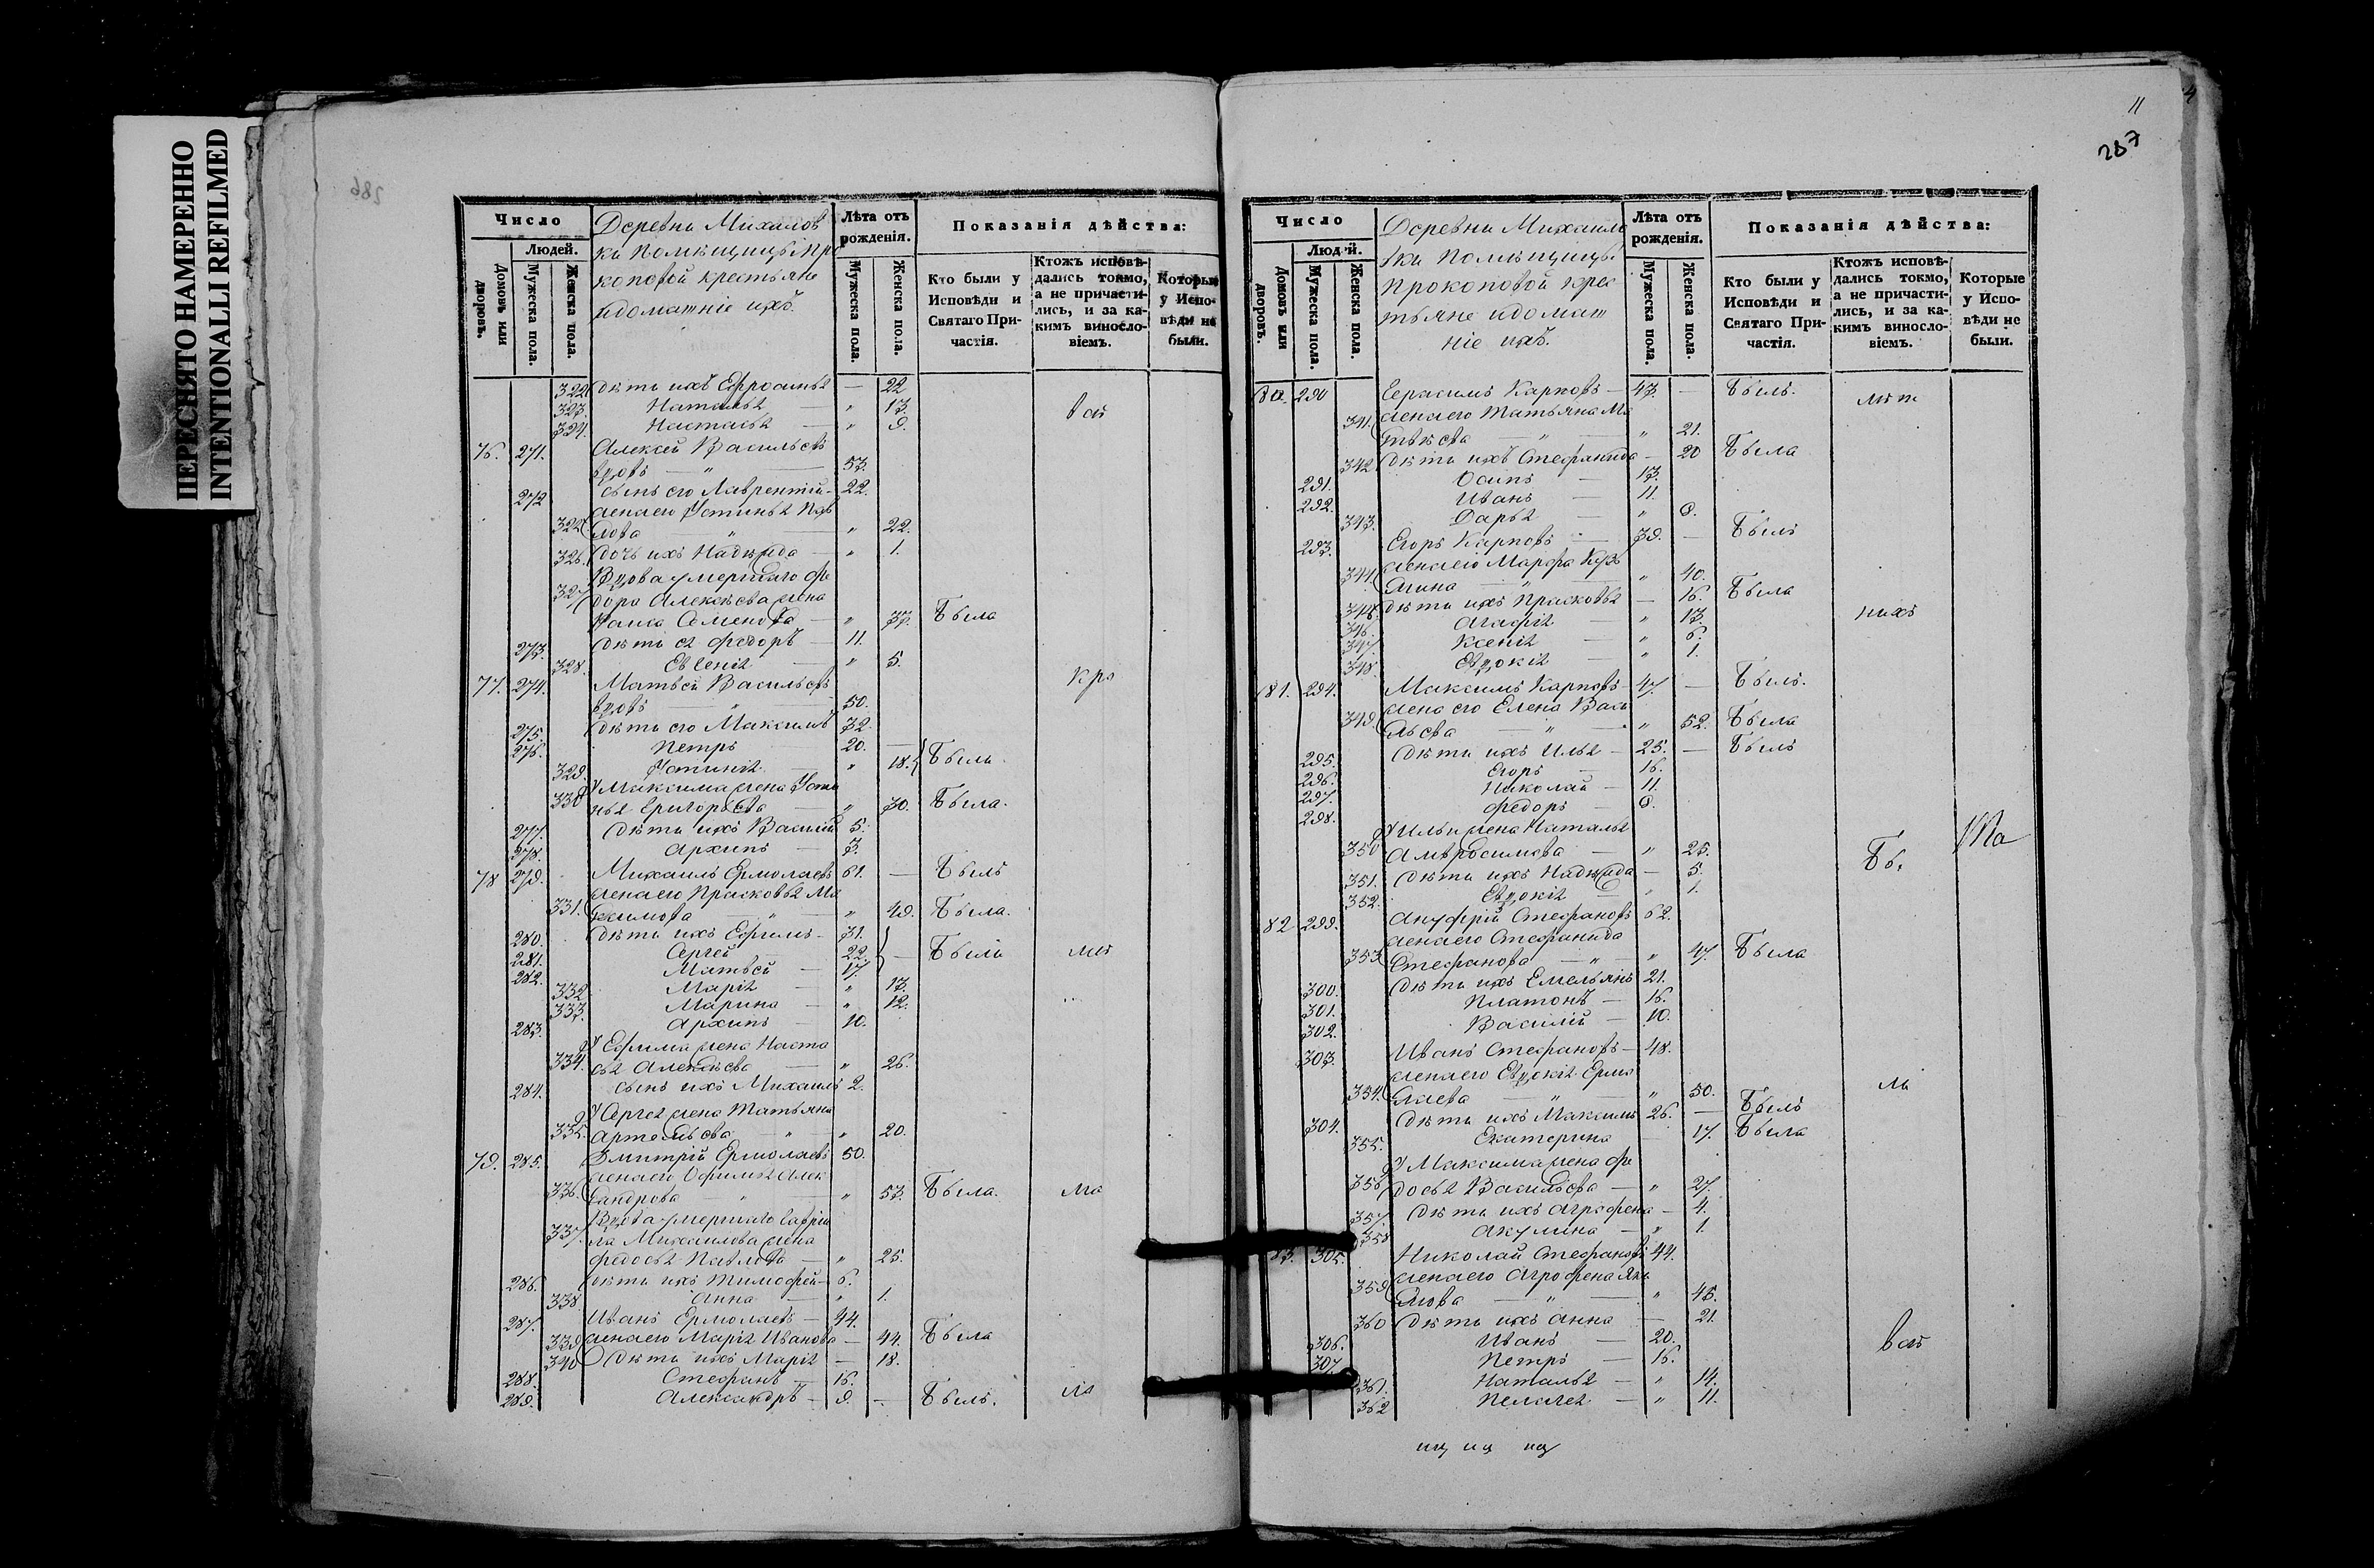 ПЕРЕСНЯТО НАМЕРЕННО
INTENTIONALLI REFILMED
286
Число
Людей.
Домовъ или дворовъ.
Мужеска пола.
Женска пола.
Деревни Михайлов
ки помѣщицы Про
коповой крестьяне
и домашніе ихъ.
Лѣта отъ рожденія.
Мужеска пола.
Женска пола.
Показанія дѣйства:
Кто были у Исповѣди и Святаго Причастія.
Ктожъ исповѣдались токмо, а не причастились, и за какимъ винословіемъ.
Которые у Исповѣди не были.
322 дѣти ихъ Ефросинья — 22
323. Наталья — " 13.
324. Настасья — " 9.
76. 271. Алексей Васильевъ
вдовъ — " — 53.
272 сынъ его Лаврентій 22.
жена его Устинья Пав
325 лова — " 22.
326. дочь ихъ Надежда — " 1.
Вдова умершаго Фе
327 дора Алексѣева жена
Семенова — " 37. Была
273. дѣти ея Федоръ — 11.
328. Евгенія — " 5.
77. 274. Матвей Васильевъ
вдовъ — " — 50.
275. дѣти его Максимъ 32.
276. Петръ 20.
329. Устинія — " 18. Были
330 У Максима жена Усти
нья Григорьева — " 30. Была.
277. дѣти ихъ Василій 5.
278. Архипъ — 3.
78 279. Михаилъ Ермолаевъ 61. — Былъ
жена его Прасковья Ма
331. ксимова — " — " 49. Была.
280. дѣти ихъ Ефимъ 31.
281. Сергей 22. — Были
282. Матвей — 17.
332 Марія — " 13.
333. Марина — " 12.
283. Архипъ — 10.
У Ефима жена Наста
334. сья Алексѣева — " 26.
284. сынъ ихъ Михаилъ 2.
У Сергея жена Татьяна
335. Артемьева — " — " 20.
79. 285. Дмитрій Ермолаевъ 50.
жена его Офимья Алек
336. сандрова — " — " 53. Была.
Вдова умершаго Гаври
337. ла Михаилова жена
Федосья Павлова — " 25.
286. дѣти ихъ Тимофей 6.
338 Анна — " 1.
287. Иванъ Ермолаевъ — 44.
339 жена его Марія Иванова — 44. Была
340 дѣти ихъ Марія — 18.
288. Стефанъ — 16.
289. Александръ — 9. — Былъ.
11
287
Число
Людей.
Домовъ или дворовъ.
Мужеска пола.
Женска пола.
Деревни Михайло
вки помѣщицы
Прокоповой крес
тьяне и домаш
ніе ихъ.
Лѣта отъ рожденія.
Мужеска пола.
Женска пола.
Показанія дѣйства:
Кто были у Исповѣди и Святаго Причастія.
Ктожъ исповѣдались токмо, а не причастились, и за какимъ винословіемъ.
Которые у Исповѣди не были.
80. 290 Герасимъ Карповъ — 43. — Былъ.
341. жена его Татьяна Ма
твѣева — " — " 21.
342 дѣти ихъ Стефанида — 20 Была
291. Осипъ — 13.
292. Иванъ — 11.
343. Дарья — " 8.
293. Егоръ Карповъ — 39. — Былъ
344. жена его Марфа Кузь
мина — " — " 40.
345. дѣти ихъ Прасковья — 16. Была
346. Агафія — " 13.
347. Ксенія — " 6.
348. Евдокія — " 1.
81. 294. Максимъ Карповъ — 47. — Былъ.
349. жена его Елена Васи
льева — " — " 52. Была
295. дѣти ихъ Илья — 25. — Былъ
296. Егоръ — 16.
297. Николай — 11.
298. Федоръ — 8.
У Ильи жена Наталья
350 Амвросимова — " 25.
351. дѣти ихъ Надежда — 5.
352. Евдокія — " 1.
82 299. Ануфрій Стефановъ 62.
жена его Стефанида
353 Стефанова — " — " 47. Была
300. дѣти ихъ Емельянъ 21.
301. Платонъ — 16.
302. Василій — 10.
303. Иванъ Стефановъ — 48.
жена его Евдокія Ермо
354. лаева — " — " 50.
304. дѣти ихъ Максимъ 26. — Былъ
355. Екатерина — 17. Была
У Максима жена Фе
356 досья Васильева — " 27.
357. дѣти ихъ Агрофена — 4.
358 Акулина — " 1.
83. 305. Николай Стефановъ 44.
359 жена его Агрофена Яко
влева — " — " 45.
360 дѣти ихъ Анна — 21.
306. Иванъ — 20.
307 Петръ — 16.
361. Наталья — " 14.
362 Пелагея — " 11.